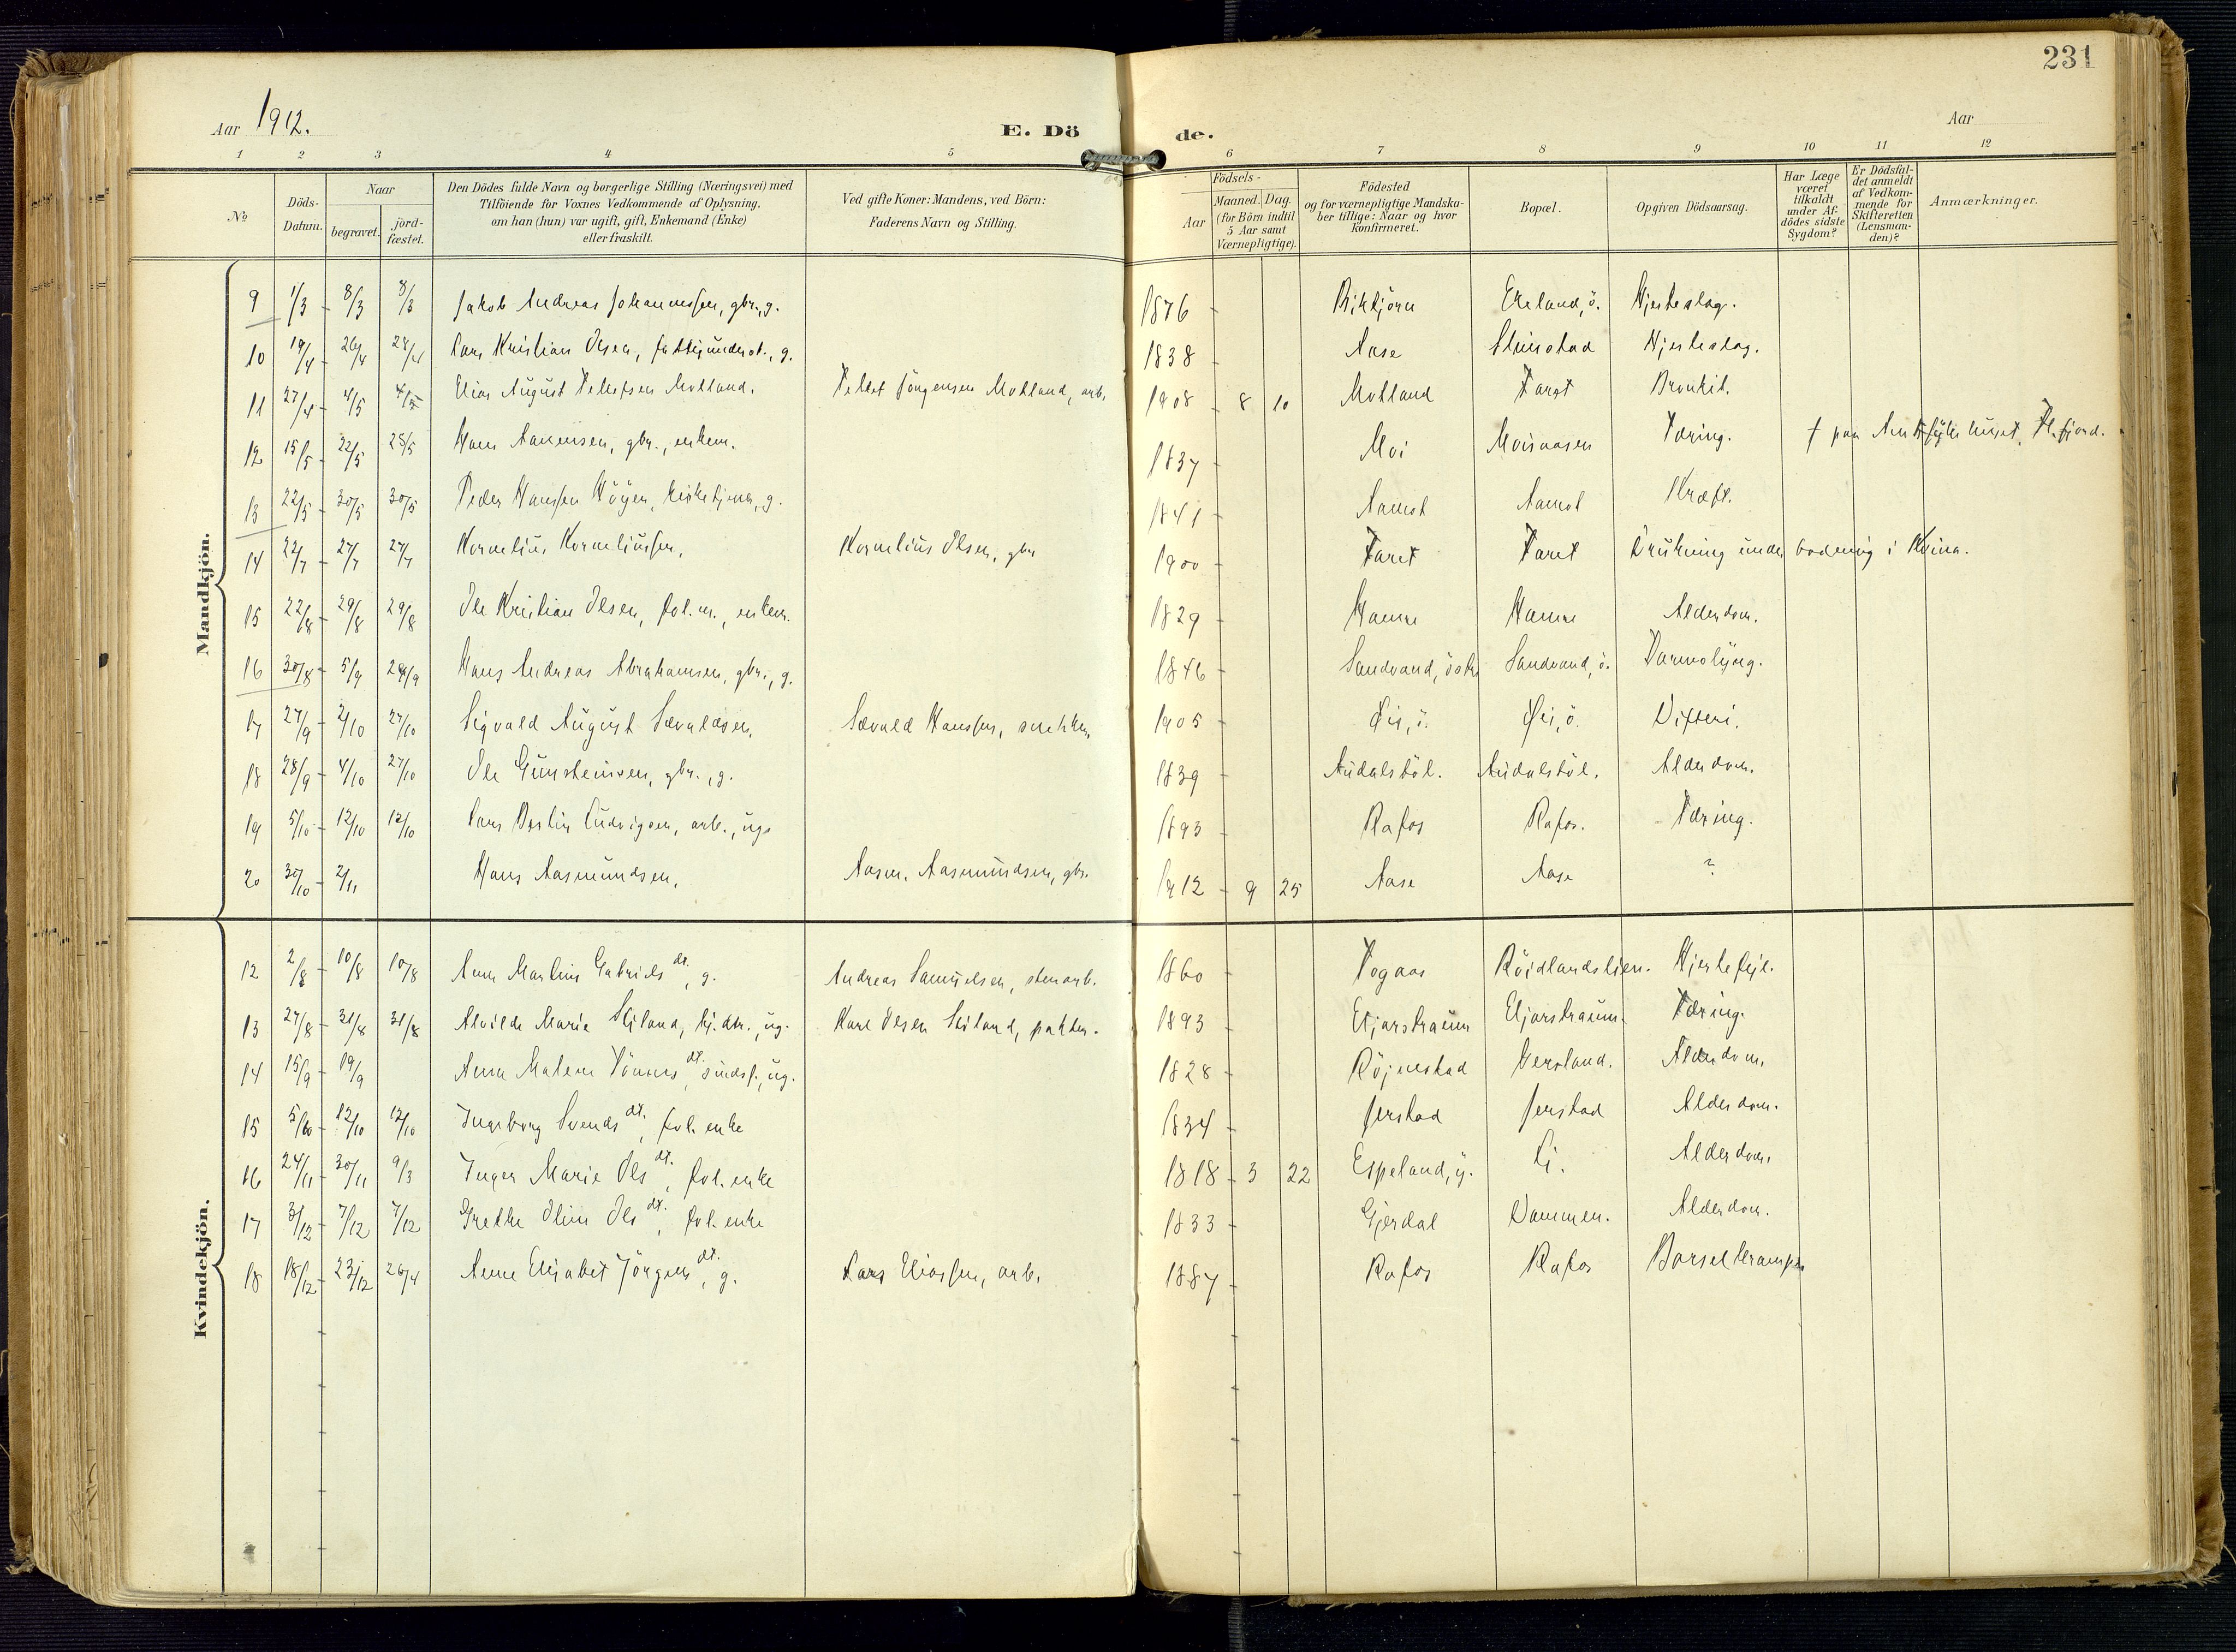 231
Aar 1912.
E. Dö de.
Aar
1 2 3 4 5 6 7 8 9 10 11 12
No
Döds-Datum.
Naar
begravet.
jord-fæstet.
Den Dödes fulde Navn og borgerlige Stilling (Næringsvei) med
Tilföiende for Voxnes Vedkommende af Oplysning,
om han (hun) var ugift, gift, Enkemand (Enke)
eller fraskilt.
Ved gifte Koner: Mandens, ved Börn:
Faderens Navn og Stilling.
Födsels-
Aar
Maaned. Dag.
(for Börn indtil
5 Aar samt
Værnepligtige).
Födested
og for værnepligtige Mandska-
ber tillige: Naar og hvor
konfirmeret.
Bopæl.
Opgiven Dödsaarsag.
Har Læge
været
tilkaldt
under Af-
dödes sidste
Sygdom?
Er Dödsfal-
det anmeldt
af Vedkom-
mende for
Skifteretten
(Lensman-
den)?
Anmærkninger.
Mandkjön.
9 1/3 8/3 8/3 Jakob Andreas Johannessen, gbr., g. 1876 Birkjörn Ekeland, ö. Hjerteslag.
10 19/4 26/4 28/4 Lars Kristian Olsen, fattigunderst., g. 1838 Aase Stuestad Hjerteslag.
11 27/4 4/5 4/5 Elias August Tellefsen Motland. Tellef Jörgensen Motland, arb. 1908 8 10 Motland Faret Bronkit.
12 15/5 22/5 25/5 Hans Aanensen, gbr., enkem. 1837 Moi Moisaasen Tæring. † paa Amtssykehuset, Fl.fjord.
13 22/5 30/5 30/5 Peder Hanssen Höyer, kirketjener, g. 1841 Aamot Aamot Kræft.
14 22/7 27/7 27/7 Kornelius Korneliussen, Kornelius Olsen, gbr 1900 Faret Faret Drukning under badning i Kvina.
15 22/8 29/8 29/8 Ole Kristian Olsen, fol.m., enkem. 1829 Hamre Hamre Alderdom.
16 30/8 5/9 29/9 Hans Andreas Abrahamsen, gbr., g. 1846 Sandvand, östre Sandvand, ö. Tarmslyng.
17 27/9 2/10 27/10 Sigvald August Sævaldsen, Sævald Hanssen, snekker, 1905 Øie, ö. Øie, ö. Difteri.
18 28/9 4/10 27/10 Ole Gunsteinsen, gbr., g. 1839 Audalstöl. Audalstöl. Alderdom.
19 5/10 12/10 12/10 Lars Ludvigsen, arb., ug. 1893 Rafos Rafos. Tæring.
20 30/10 2/11 Hans Aasmundsen, Aasm. Aasmundsen, gbr. 1912 9 25 Aase Aase ?
Kvindekjön.
12 2/8 10/8 10/8 Anne Martine Gabriels dt., g. Andreas Samuelsen, stenarb. 1860 Fogaas Röidlandslien. Hjertefejl.
13 27/8 31/8 31/8 Alvilde Marie Stiland, hj.dtr., ug. Karl Olsen Stiland, pakter. 1893 Eljarstraum Eljarstraum. Tæring.
14 15/9 19/9 Anna Malene Tönnes dt., sindsf., ug. 1828 Röjnestad Versland. Alderdom,
15 5/10 12/10 12/10 Ingeborg Svends dt., fol.enke 1834 Jerstad Jerstad Alderdom.
16 24/11 30/11 9/3 Inger Marie Ols dt., fol.enke 1818 3 22 Espeland, y. Li. Alderdom,
17 3/12 7/12 7/12 Grethe Oline Ols dt., fol.enke 1833 Gjerdal Dammen. Alderdom.
18 18/12 23/12 26/4 Anne Elisabet Jörgens dt., g. Lars Eliassen, arb. 1887 Rafos Rafos Barselkrampe